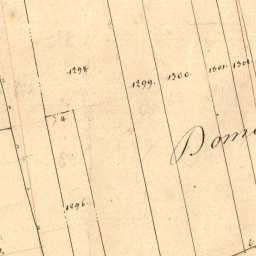 1298.
1299.
1300.
1301.
1296.
Dom